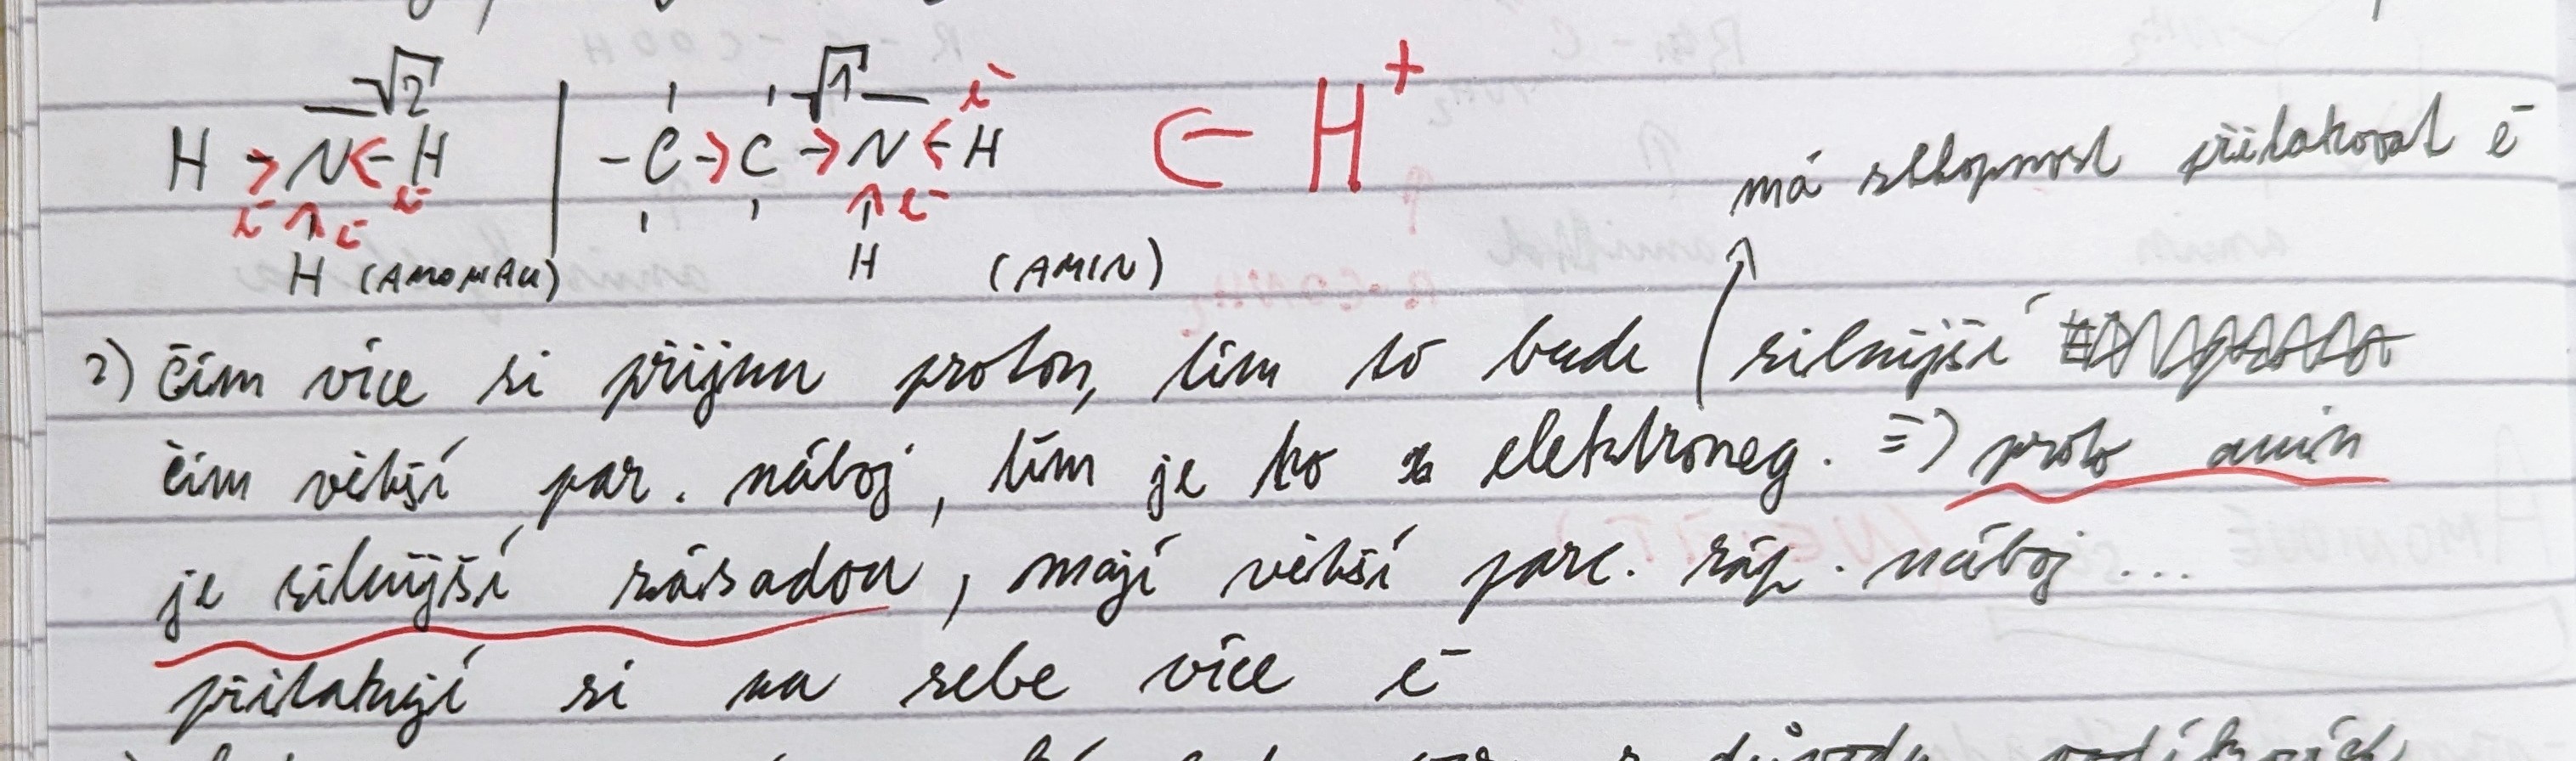 √2
H → N ← H
e⁻ ↑ e⁻ e⁻
H (AMONIAK)
√1 e⁻
- C → C → N ← H
↑ e⁻
H (AMIN)
⊂– H⁺
má schopnost přilakovat e⁻
2) čím více si přijmu proton, tím to bude silnější
čím větší par. náboj, tím je to elektroneg. => proto amin
je silnější zásadou, mají větší parc. záp. náboj...
přilakují si na sebe více e⁻